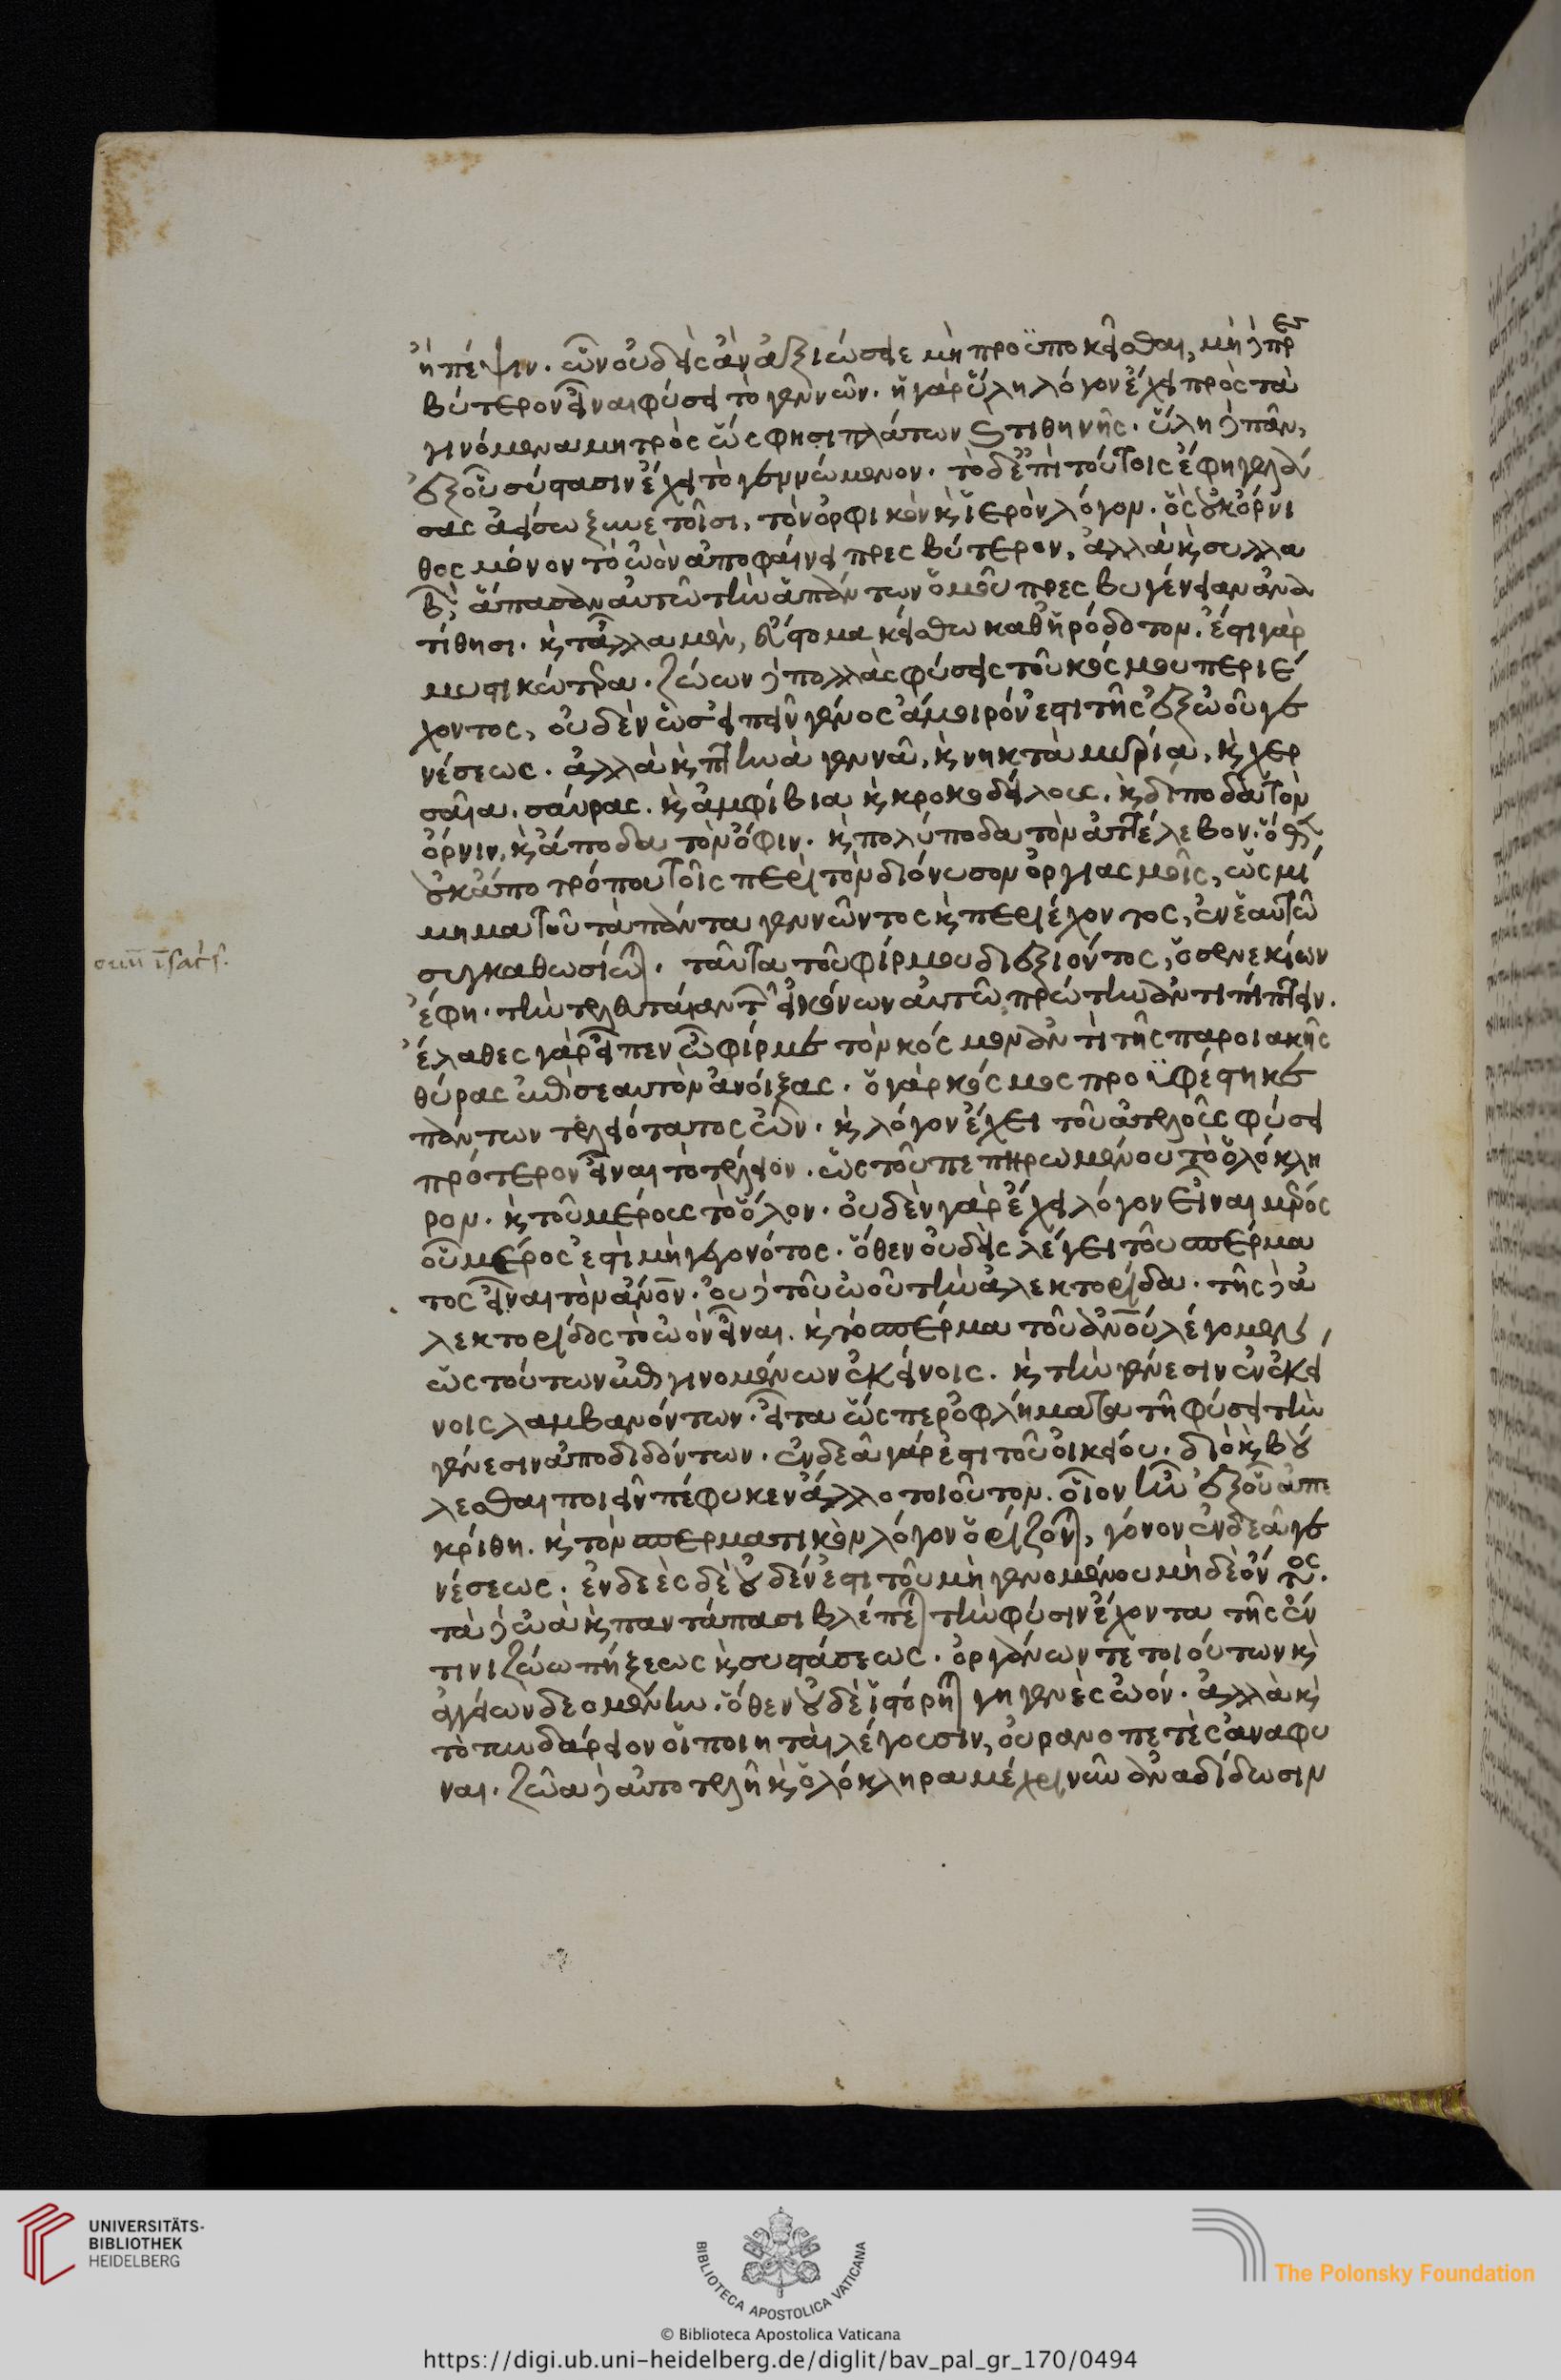 ἢ πέψιν. ὧν οὐδεὶς ἂν ἀξιώσειε μὴ προϋποκεῖσθαι, μὴ δὲ πρεσ
βύτερον εἶναι φύσει τὸ γεννῶν. ἡ γὰρ ὕλη λόγον ἔχει πρὸς τὰ
γινόμενα μητρὸς ὥς φησι πλάτων ϗ τιθηνῆς. ὕλη δὲ πᾶν,
ἐξ οὗ σύστασιν ἔχει τὸ γεννώμενον. τὸ δ' ἐπὶ τούτοις ἔφη γελά
σας ἀείσω ξυνετοῖσι, τὸν ὀρφικὸν ϗ ἱερὸν λόγον. ὃς οὐκ ὄρνι
θος μόνον τὸ ὠὸν ἀποφαίνει πρεσβύτερον, ἀλλὰ ϗ συλλα
βὼν ἅπασαν αὐτῶ τὴν ἁπάντων ὁμοῦ πρεσβυγένειαν ἀνα
τίθησι. ϗ τἆλλα μὲν, εὔστομα κείσθω καθ' ἡρόδοτον. ἔστι γὰρ
μυστικώτερα. ζώων δὲ πολλὰς φύσεις τοῦ κόσμου περιέ
χοντος, οὐδὲν ὡς εἰπεῖν γένος ἄμοιρόν ἐστι τῆς ἐξ ὠοῦ γε
νέσεως. ἀλλὰ ϗ πτηνὰ γεννᾶ, ϗ νηκτὰ μυρία, ϗ χερ
σαῖα, σαύρας. ϗ ἀμφίβια ϗ κροκοδείλους. ϗ δίποδα τὸν
ὄρνιν, ϗ ἄποδα τὸν ὄφιν. ϗ πολύποδα τὸν ἀττέλεβον. ὅθεν
οὐκ ἄπο τρόπου τοῖς περὶ τὸν διόνυσον ὀργιασμοῖς, ὡς μί
μημα τοῦ τὰ πάντα γεννῶντος ϗ περιέχοντος, ἐν ἑαυτῶ
συγκαθωσίωται. ταῦτα τοῦ φίρμου διεξιόντος, ὁ σενεκίων
ἔφη. τὴν τελευταίαν τῶν εἰκόνων αὐτῶ πρώτην ἀντιπίπτειν.
ἔλαθες γὰρ εἶπεν ὦ φίρμε τὸν κόσμον ἀντὶ τῆς παροιακῆς
θύρας ἐπὶ σεαυτὸν ἀνοίξας. ὁ γὰρ κόσμος προϋφέστηκε
πάντων τελειότατος ὤν. ϗ λόγον ἔχει τοῦ ἀτελοῦς φύσει
πρότερον εἶναι τὸ τέλειον. ὡς τοῦ πεπηρωμένου τὸ ὁλόκλη
ρον. ϗ τοῦ μέρους τὸ ὅλον. οὐδὲν γὰρ ἔχει λόγον εἶναι μέρος
οὗ μέρος ἐστὶ μὴ γεγονότος. ὅθεν οὐδεὶς λέγει τοῦ σπέρμα
τος εἶναι τὸν ἄνον. οὐδὲ τοῦ ὠοῦ τὴν ἀλεκτορίδα. τῆς δὲ ἀ
λεκτορίδος τὸ ὠὸν εἶναι. ϗ τὸ σπέρμα τοῦ ἀνου λέγομεν,
ὡς τούτων ἐπιγινομένων ἐκείνοις. ϗ τὴν γένεσιν ἐν ἐκεί
νοις λαμβανόντων. εἶτα ὥσπερ ὀφλήματα τῆ φύσει τὴν
γένεσιν ἀποδιδόντων. ἐνδεᾶ γάρ ἐστι τοῦ οἰκείου. διὸ ϗ βού
λεσθαι ποιεῖν πέφυκεν ἄλλο τοιοῦτον. οἷον ἦν ἐξ οὗ ἀπε
κρίθη. ϗ τὸν σπερματικὸν λόγον ὁρίζονται, γόνον ἐνδεᾶ γε
νέσεως. ἐνδεὲς δὲ οὐδέν ἐστι τοῦ μὴ γενομένου μὴ δὲ ὄντος.
τὰ δὲ ὠὰ ϗ παντάπασι βλέπεται τὴν φύσιν ἔχοντα τῆς ἔν
τινι ζώω πήξεως ϗ συστάσεως. ὀργάνων τε τοιούτων ϗ
ἀγγείων δεομένην. ὅθεν οὐδὲ ἱστόρηται γηγενὲς ὠόν. ἀλλὰ ϗ
τὸ τυνδάρειον οἱ ποιηταὶ λέγουσιν, οὐρανοπετὲς ἀναφῦ
ναι. ζῶα δὲ αὐτοτελῆ ϗ ὁλόκληρα μέχρι νῦν ἀναδίδωσιν
UNIVERSITÄTS-
BIBLIOTHEK
HEIDELBERG
BIBLIOTECA APOSTOLICA VATICANA
The Polonsky Foundation
© Biblioteca Apostolica Vaticana
https://digi.ub.uni-heidelberg.de/diglit/bav_pal_gr_170/0494